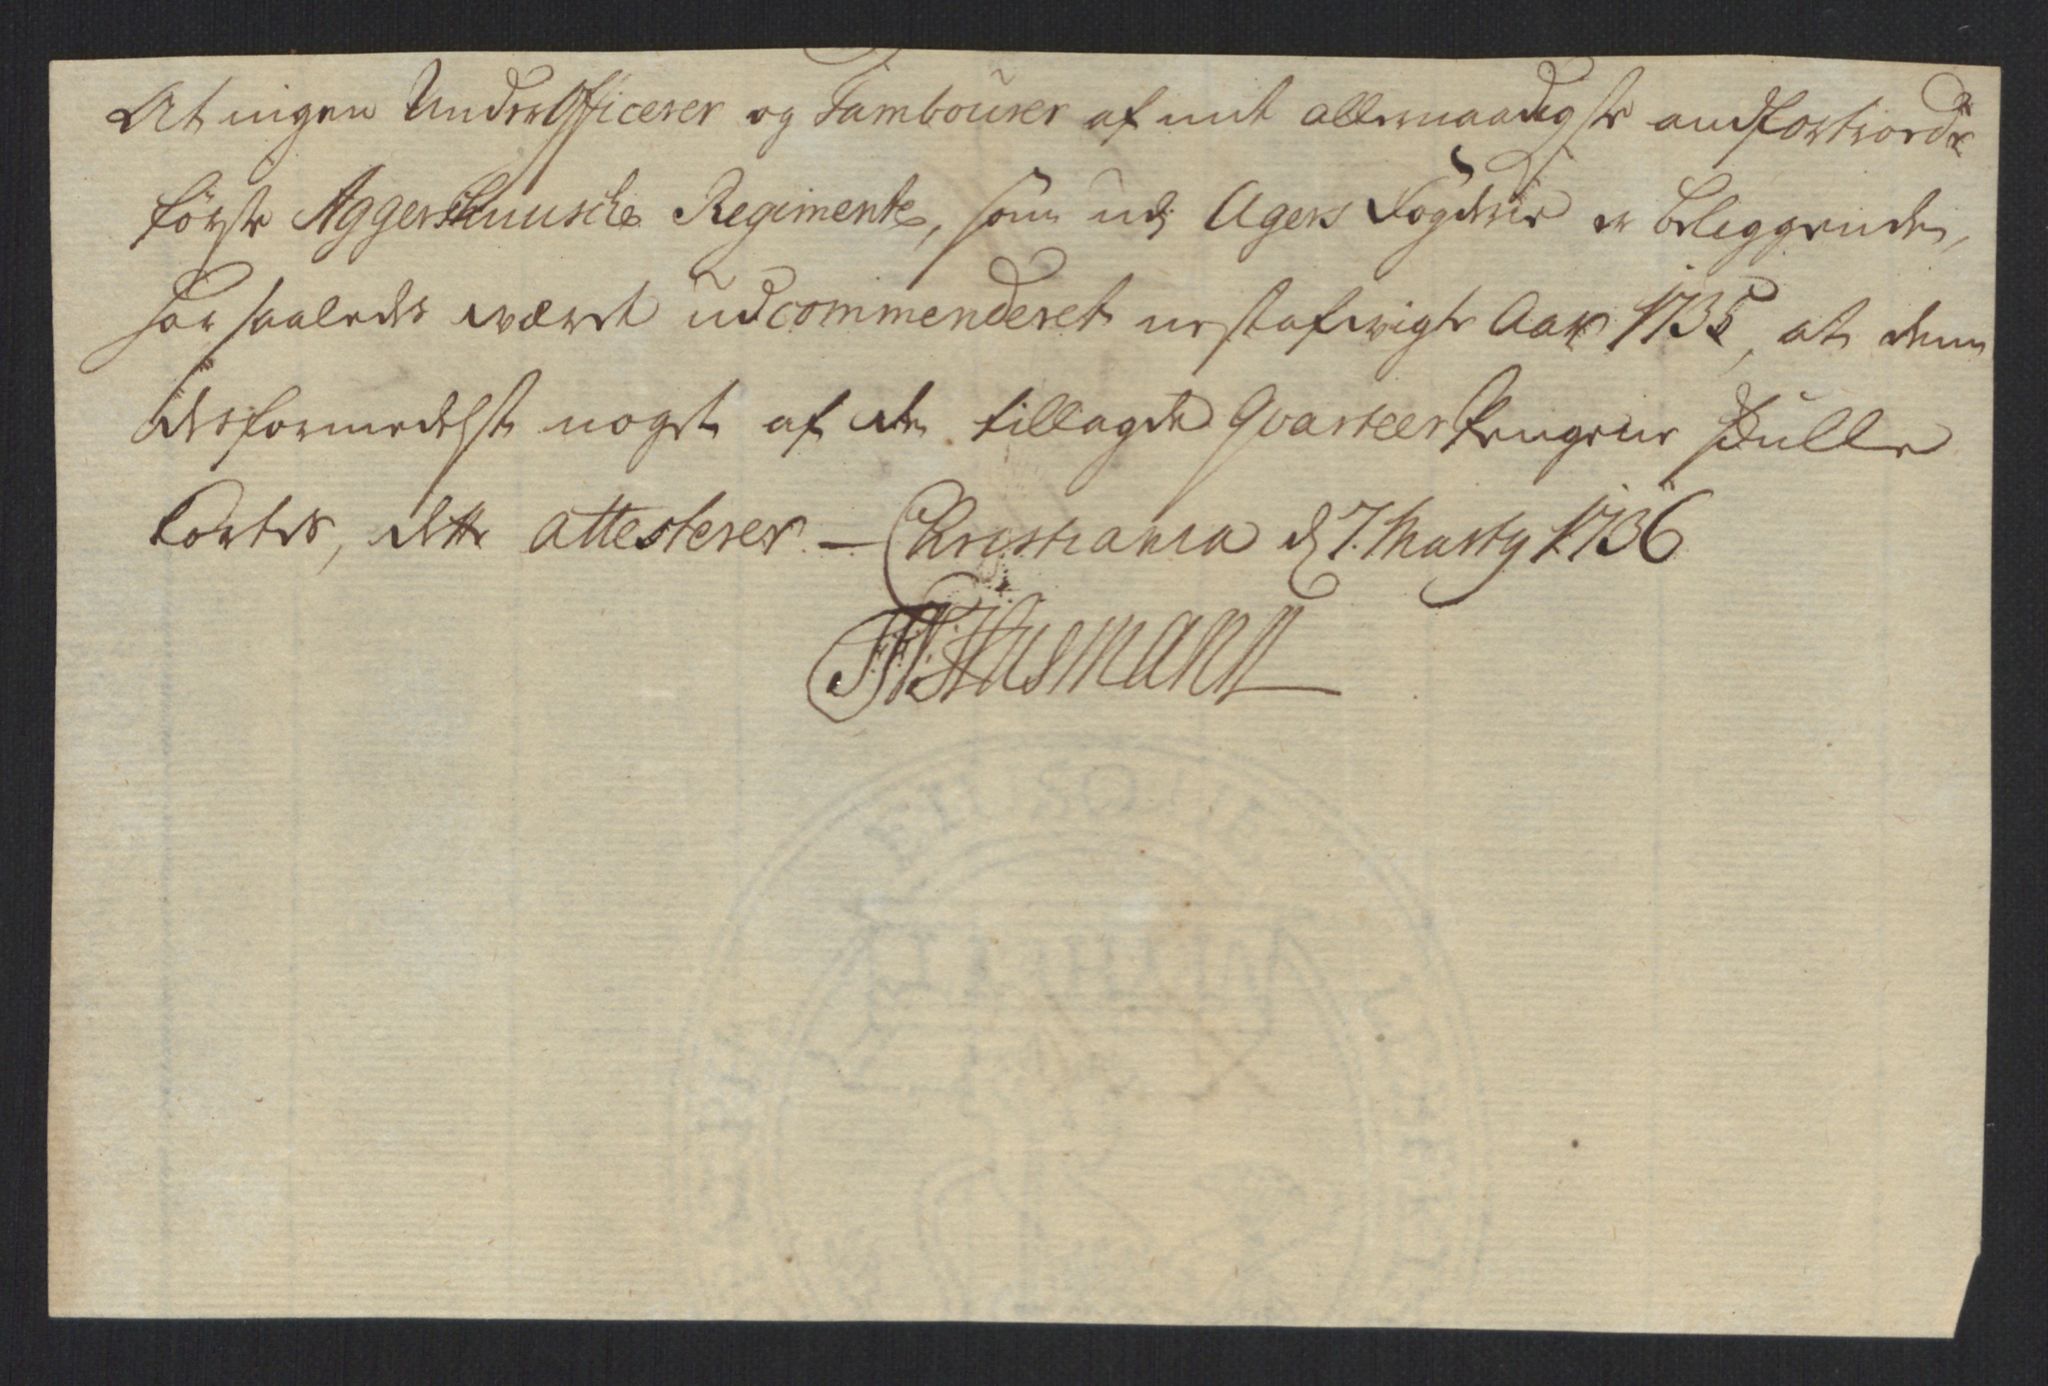 At ingen UnderOfficerer og Tambourer af mit allernaadigste andfortroede
første Aggershuusche Regimente, som udj Agers Fogderie er beliggende,
har saaledes været udcommenderet nestafvigte Aar 1735, at dem
desformedelst noget af de tillagde Qvarteer Pengene skulle
kortes, dette attesterer. — Christiania d 7. Marty 1736
Husmann